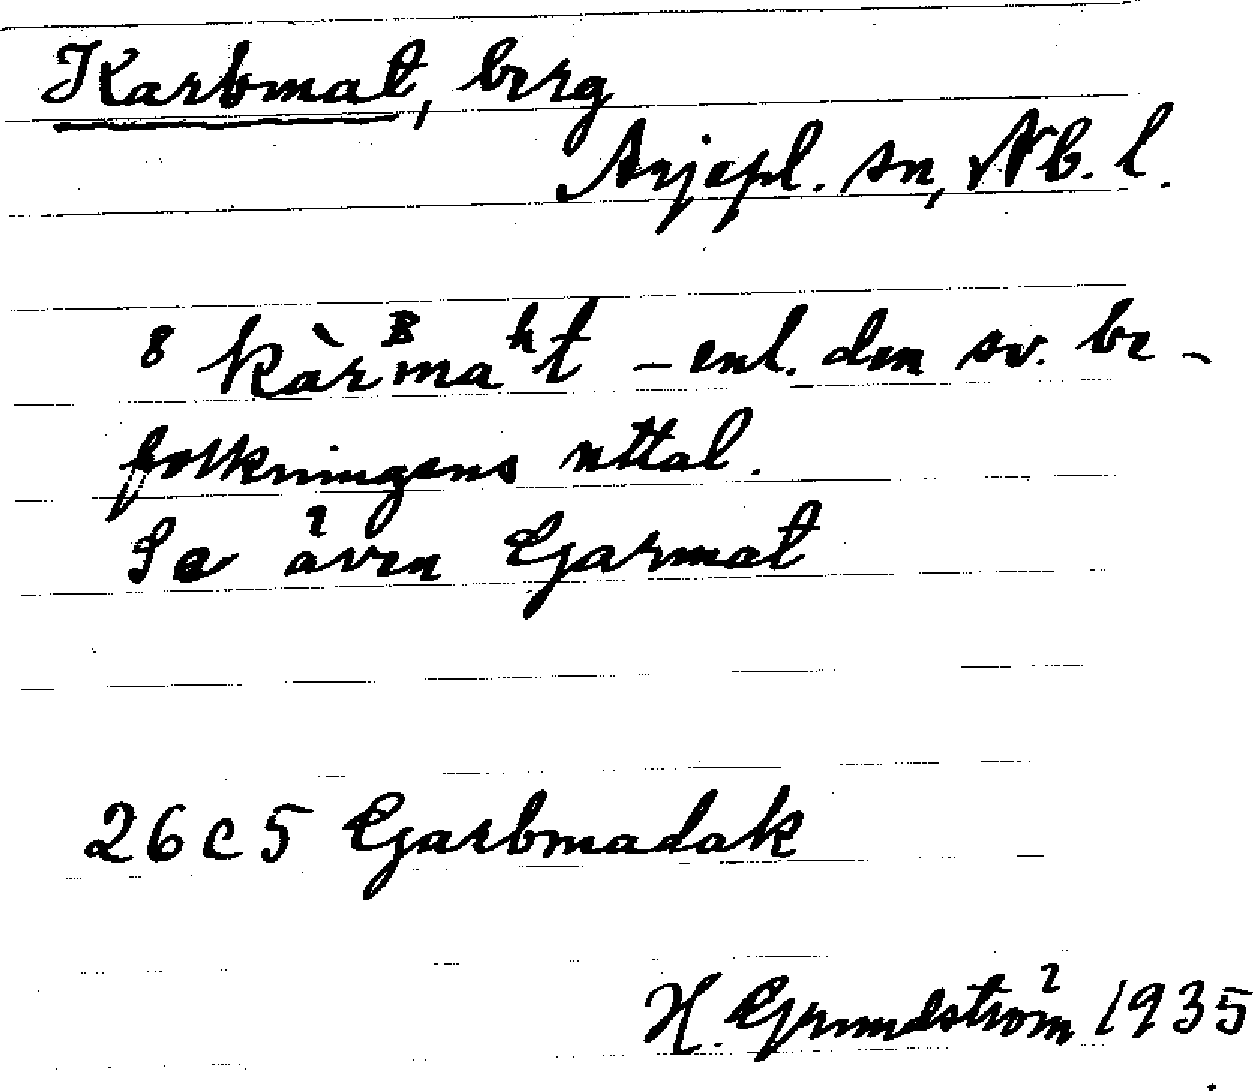 Karbmat, berg
Arjepl. sn, Nb. l.
8 kàrᴮmaʰt – enl. den sv. be-
folkningens uttal.
Se även Garmat
26 c 5 Garbmadak
H. Grundström 1935